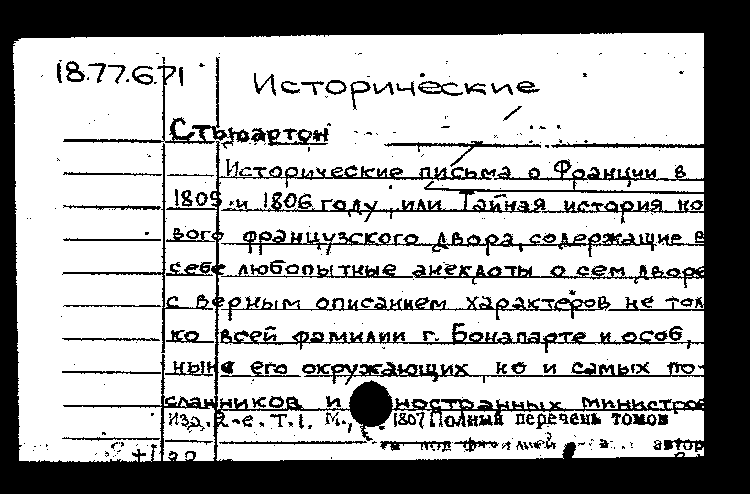 18.77.671
Исторические
Стьюартон
Исторические письма о Франции в
1805 и 1806 году, или Тайная история но
вого французского двора, содержащие в
себе любопытные анекдоты о сем дворе
с верным описанием характеров не тол
ко всей фамилии г. Бонапарте и особ,
ныне его окружающих, но и самых по-
сланников и иностранных министров
Изд. 2-е. Т.1. М., 1807 Полный перечень томов
под фамилией автор